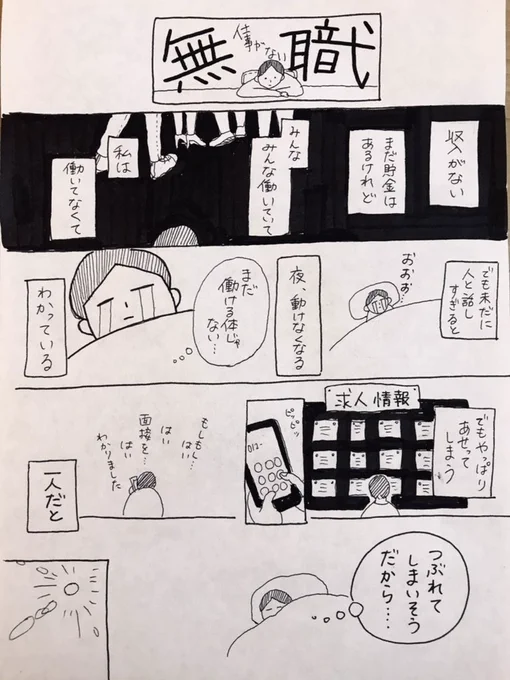 無職
仕事がない
収入がない
まだ貯金は
あるけれど
みんな
みんな働いていて
私は
働いてなくて
でも未だに
人と話し
すぎると
おおお…
夜、動けなくなる
まだ
働ける体じゃ
ない…
わかっている
でもやっぱり
あせって
しまう
求人情報
ピッピッ
012-
もしもし…
はい
はい
面接を…
はい
わかりました
一人だと
つぶれて
しまいそう
だから……